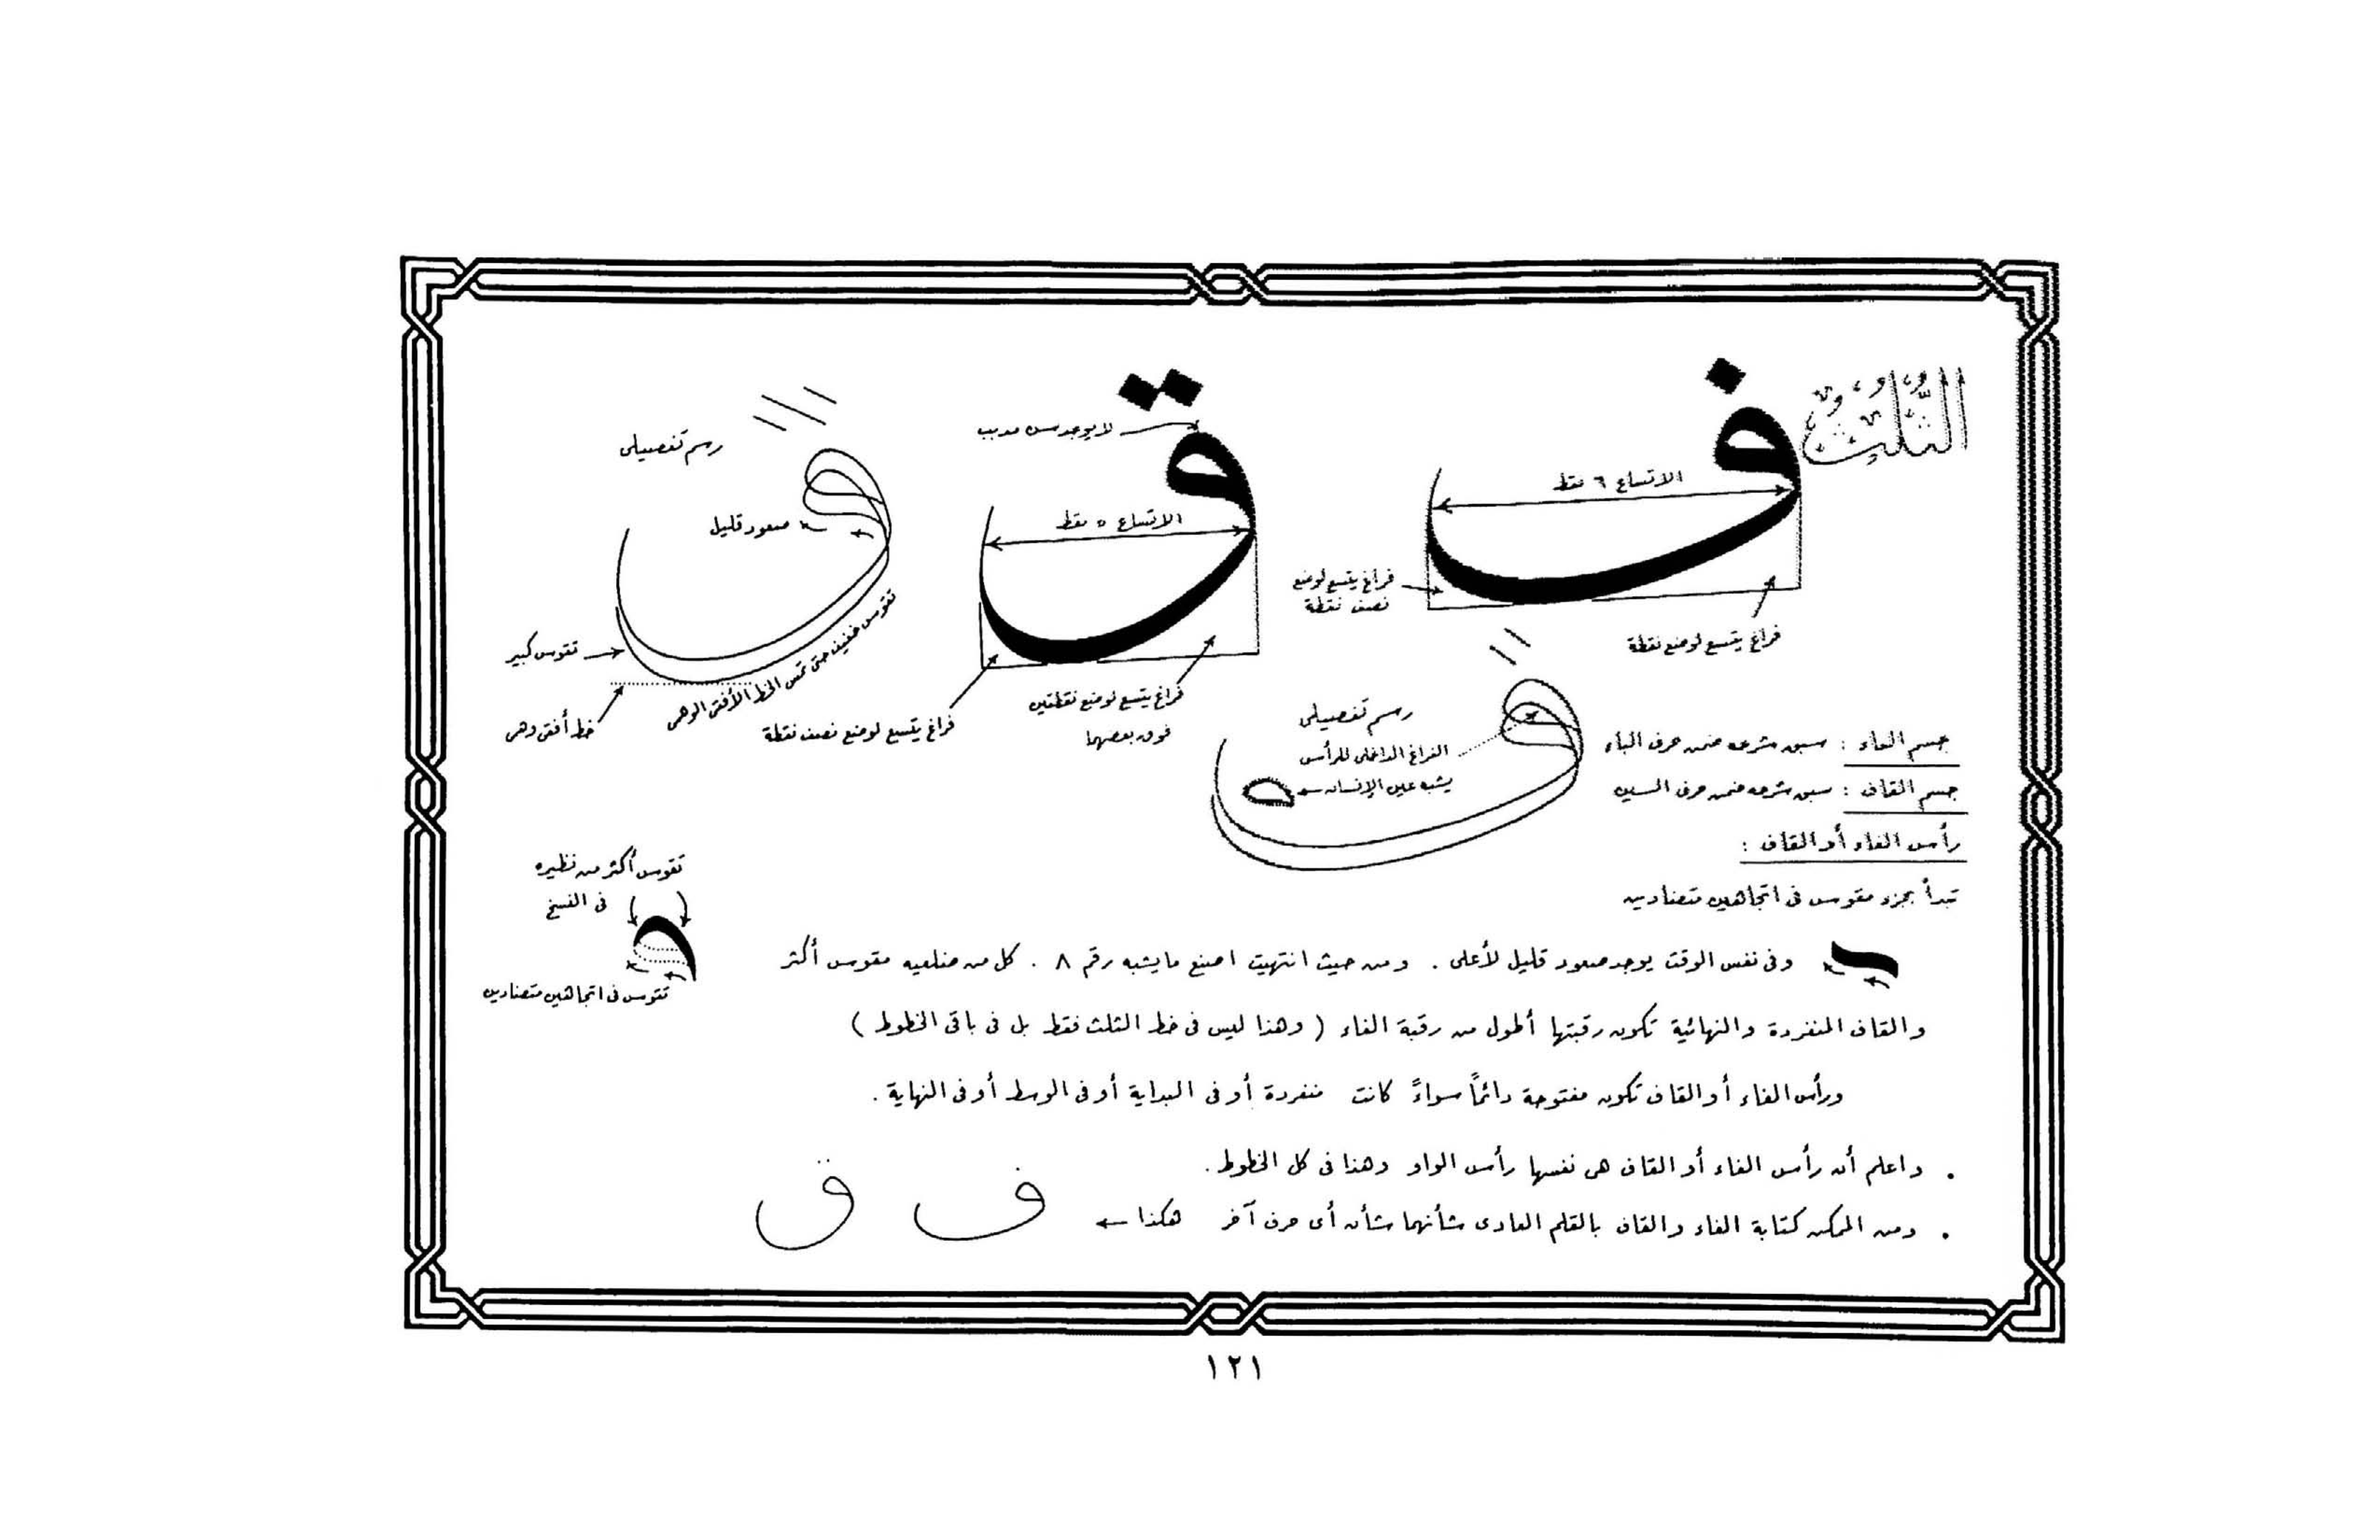 الثُّلُث
ف
الاتساع ٦ نقط
فراغ يتسع لوضع
نصف نقطة
فراغ يتسع لوضع نقطة
ق
لا يوجد سن مدبب
الاتساع ٥ نقط
فراغ يتسع لوضع نقطتين
فوق بعضهما
فراغ يتسع لوضع نصف نقطة
رسم تفصيلى
صعود قليل
تقوس خفيف حتى تمس الخط الأفقى الوهمى
تقوس كبير
خط أفقى وهمى
رسم تفصيلى
الفراغ الداخلى للرأس
يشبه عين الإنسان
جسم الفاء : سبق شرحه ضمن حرف الباء
جسم القاف : سبق شرحه ضمن حرف السين
رأس الفاء أو القاف :
تبدأ بجزء مقوس فى اتجاهين متضادين
تقوس أكثر من نظيره
فى النسخ
تقوس فى اتجاهين متضادين
وفى نفس الوقت يوجد صعود قليل لأعلى . ومن حيث انتهيت اصنع ما يشبه رقم ٨ . كل من ضلعيه مقوس أكثر
والقاف المنفردة والنهائية تكون رقبتها أطول من رقبة الفاء ( وهذا ليس فى خط الثلث فقط بل فى باقى الخطوط )
ورأس الفاء أو القاف تكون مفتوحة دائماً سواءً كانت منفردة أو فى البداية أو فى الوسط أو فى النهاية .
. واعلم أن رأس الفاء أو القاف هى نفسها رأس الواو وهذا فى كل الخطوط .
. ومن الممكن كتابة الفاء والقاف بالقلم العادى شأنهما شأن أى حرف آخر هكذا ← ف ق
١٢١